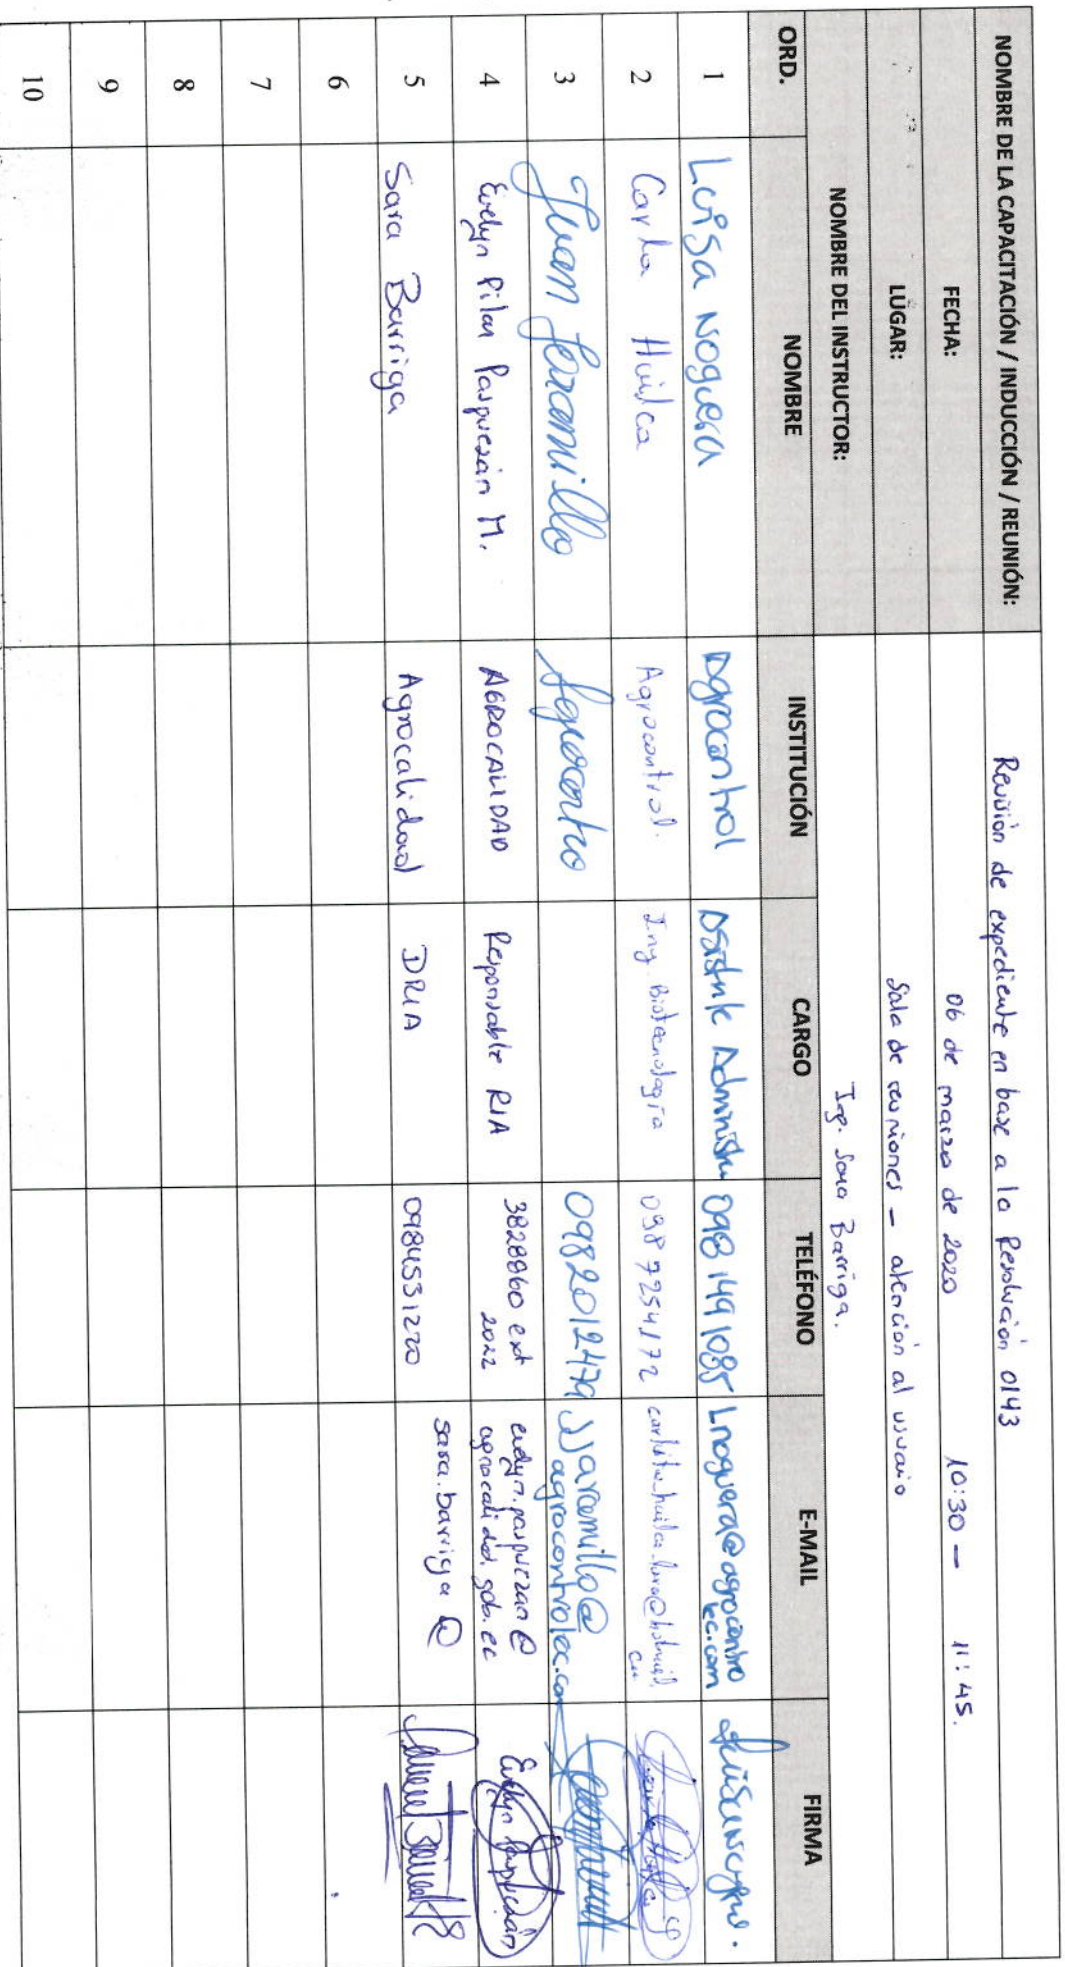 NOMBRE DE LA CAPACITACIÓN / INDUCCIÓN / REUNIÓN: Revisión de expediente en base a la Resolución 0143
FECHA: 06 de marzo de 2020 10:30 — 11:45.
LUGAR: Sala de reuniones – atención al usuario
NOMBRE DEL INSTRUCTOR: Ing. Sara Barriga.
ORD. NOMBRE INSTITUCIÓN CARGO TELÉFONO E-MAIL FIRMA
1 Luisa Noguera Agrocontrol Asistente Administra 0981491085 Lnoguera@agrocontro
lec.com
2 Carla Huilca Agrocontrol. Ing. Biotecnología 0987254172
3 Juan Jaramillo Agrocontro 0982012479 JJaramillo@
agrocontrolec.com
4 Evelyn Pilar Paspuezán M. AGROCALIDAD Responsable RIA 3828860 ext
2022 evelyn.paspuezan@
agrocalidad.gob.ec Evelyn Paspuezán
5 Sara Barriga Agrocalidad DRIA 0984531220 sara.barriga@
6
7
8
9
10